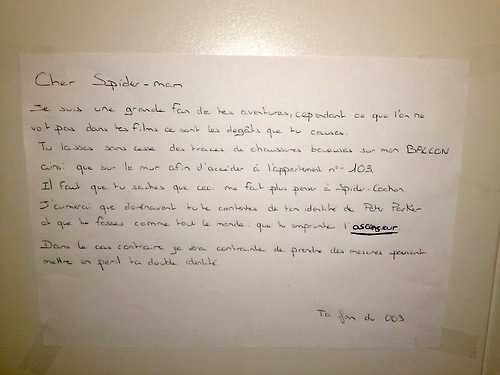 Cher Spider-man
Je suis une grande fan de tes aventures, cependant ce que l'on ne
voit pas dans tes films ce sont les degâts que tu causes.
Tu laisses sans cesse des traces de chaussures boueuses sur mon BALCON
ainsi que sur le mur afin d'accéder à l'appartement n° 103.
Il faut que tu saches que ceci me fait plus penser à Spider-Cochon.
J'aimerai que dorénavant tu te contentes de ton identité de Peter Parker
et que tu fasses comme tout le monde: que tu empruntes l'ascenseur.
Dans le cas contraire je serai contrainte de prendre des mesures pouvant
mettre en péril ta double identité.
Ta fan du 003.